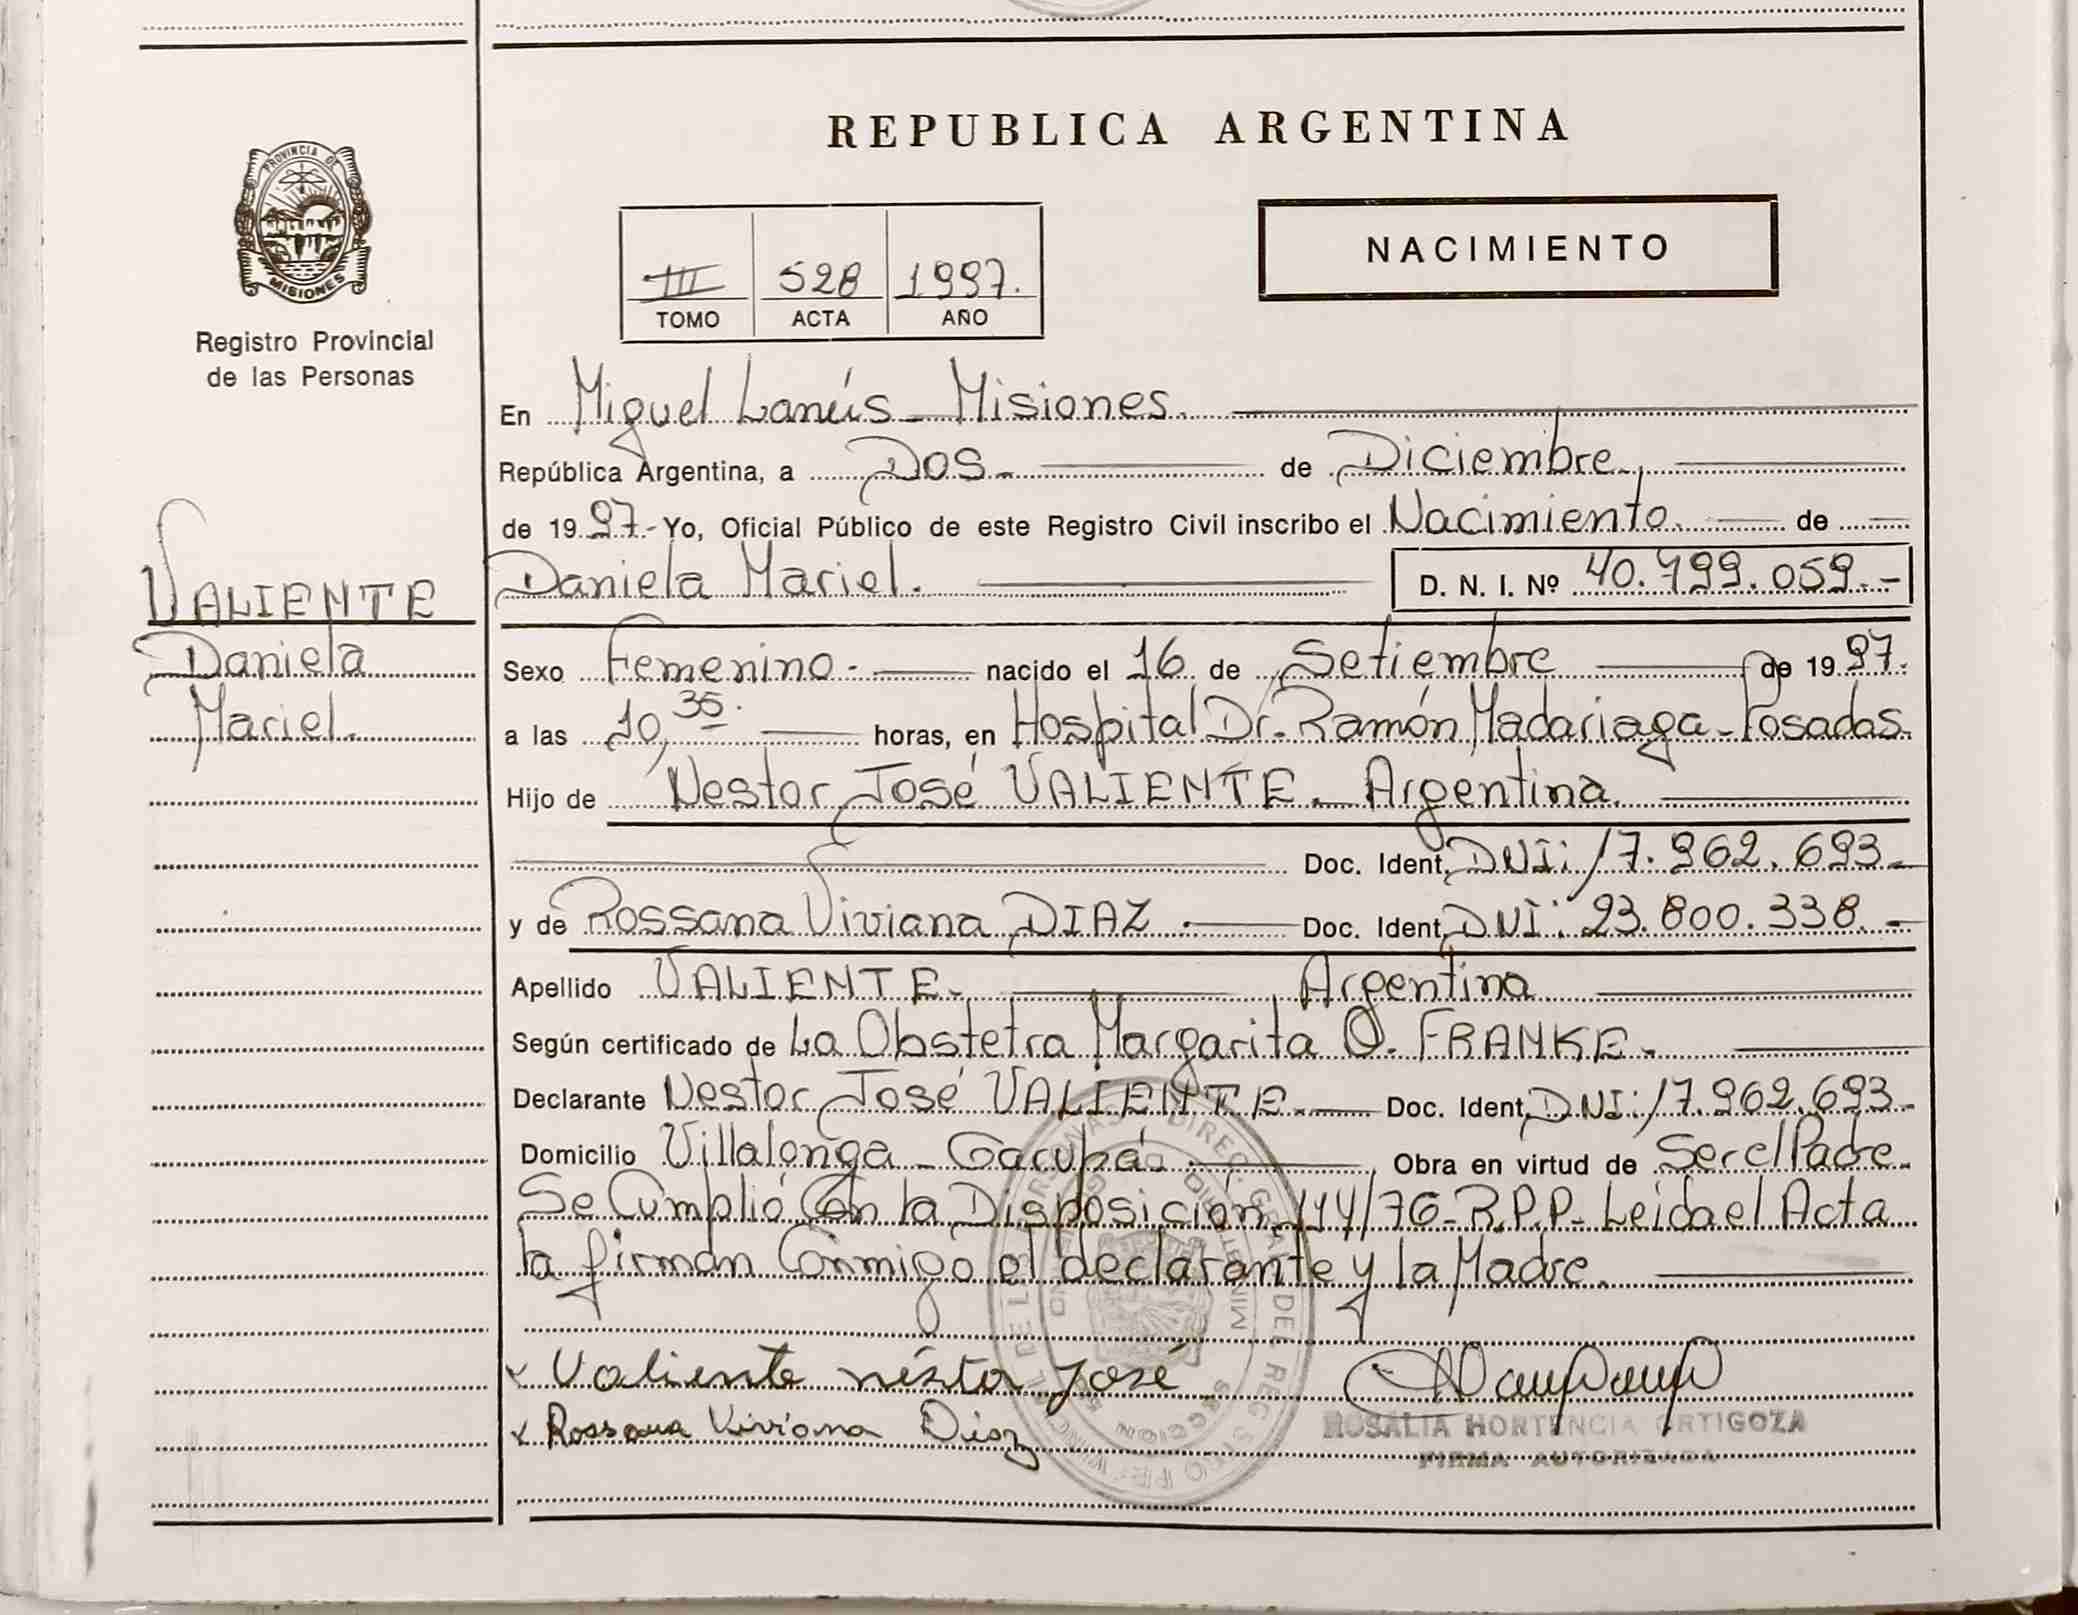 PROVINCIA DE
MISIONES
Registro Provincial
de las Personas
VALIENTE
Daniela
Mariel.
REPUBLICA ARGENTINA
III 528 1997.
TOMO ACTA AÑO
NACIMIENTO
En Miguel Lanús - Misiones.
República Argentina, a Dos.- de Diciembre,
de 1997.- Yo, Oficial Público de este Registro Civil inscribo el Nacimiento de
Daniela Mariel. D. N. I. Nº 40.799.059.-
Sexo Femenino.- nacido el 16 de Setiembre de 1997.
a las 10,35. horas, en Hospital Dr. Ramón Madariaga - Posadas.
Hijo de Nestor José VALIENTE. Argentina.
Doc. Ident. DNI: 17.962.693.-
y de Rossana Viviana DIAZ.- Doc. Ident. DNI: 23.800.338.-
Apellido VALIENTE. Argentina
Según certificado de La Obstetra Margarita O. FRANKE.
Declarante Nestor José VALIENTE.- Doc. Ident. DNI: 17.962.693-
Domicilio Villalonga - Garupá. Obra en virtud de Ser el Padre.
Se Cumplió Con la Disposición 114/76- R.P.P- Leida el Acta
la firman Conmigo el declarante y la Madre.
x Valiente néstor José
x Rossana Viviana Diaz
ROSALIA HORTENCIA ORTIGOZA
FIRMA AUTORIZADA